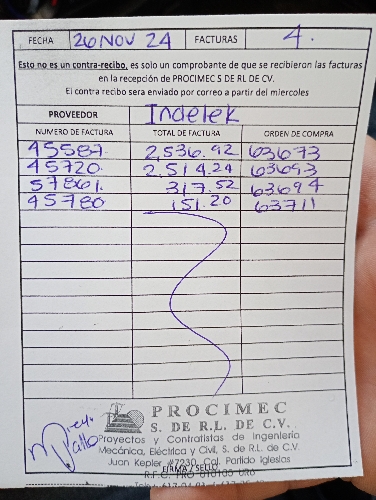 FECHA 26 NOV 24 FACTURAS 4.
Esto no es un contra-recibo, es solo un comprobante de que se recibieron las facturas
en la recepción de PROCIMEC S DE RL DE CV.
El contra recibo sera enviado por correo a partir del miercoles
PROVEEDOR Indelek
NUMERO DE FACTURA TOTAL DE FACTURA ORDEN DE COMPRA
45587 2,536.92 63673
45720 2,514.24 63693
57861 317.52 63694
45780 151.20 63711
PROCIMEC
S. DE R.L. DE C.V.
Proyectos y Contratistas de Ingenieria
Mecánica, Eléctrica y Civil, S. de R.L. de C.V.
Juan Kepler #7230 Col. Partido Iglesias
FIRMA / SELLO
R.F.C. PRO